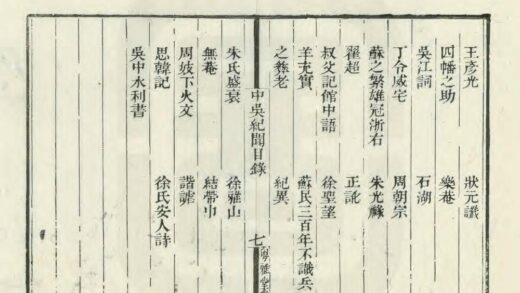 王彥光　狀元讖
四幡之助　樂菴
吳江詞　石湖
丁令威宅　周朝宗
蘇之繁雄冠浙右　朱光
翟超　正訛
叔父記館中語　徐聖望
羊充實　蘇民三百年不識兵
之彝老　紀異
中吳紀聞目錄　七　粵雅堂
朱氏盛衰　徐稚山
無菴　結帶巾
周妓下火文　諧謔
思韓記　徐氏安人詩
吳中水利書